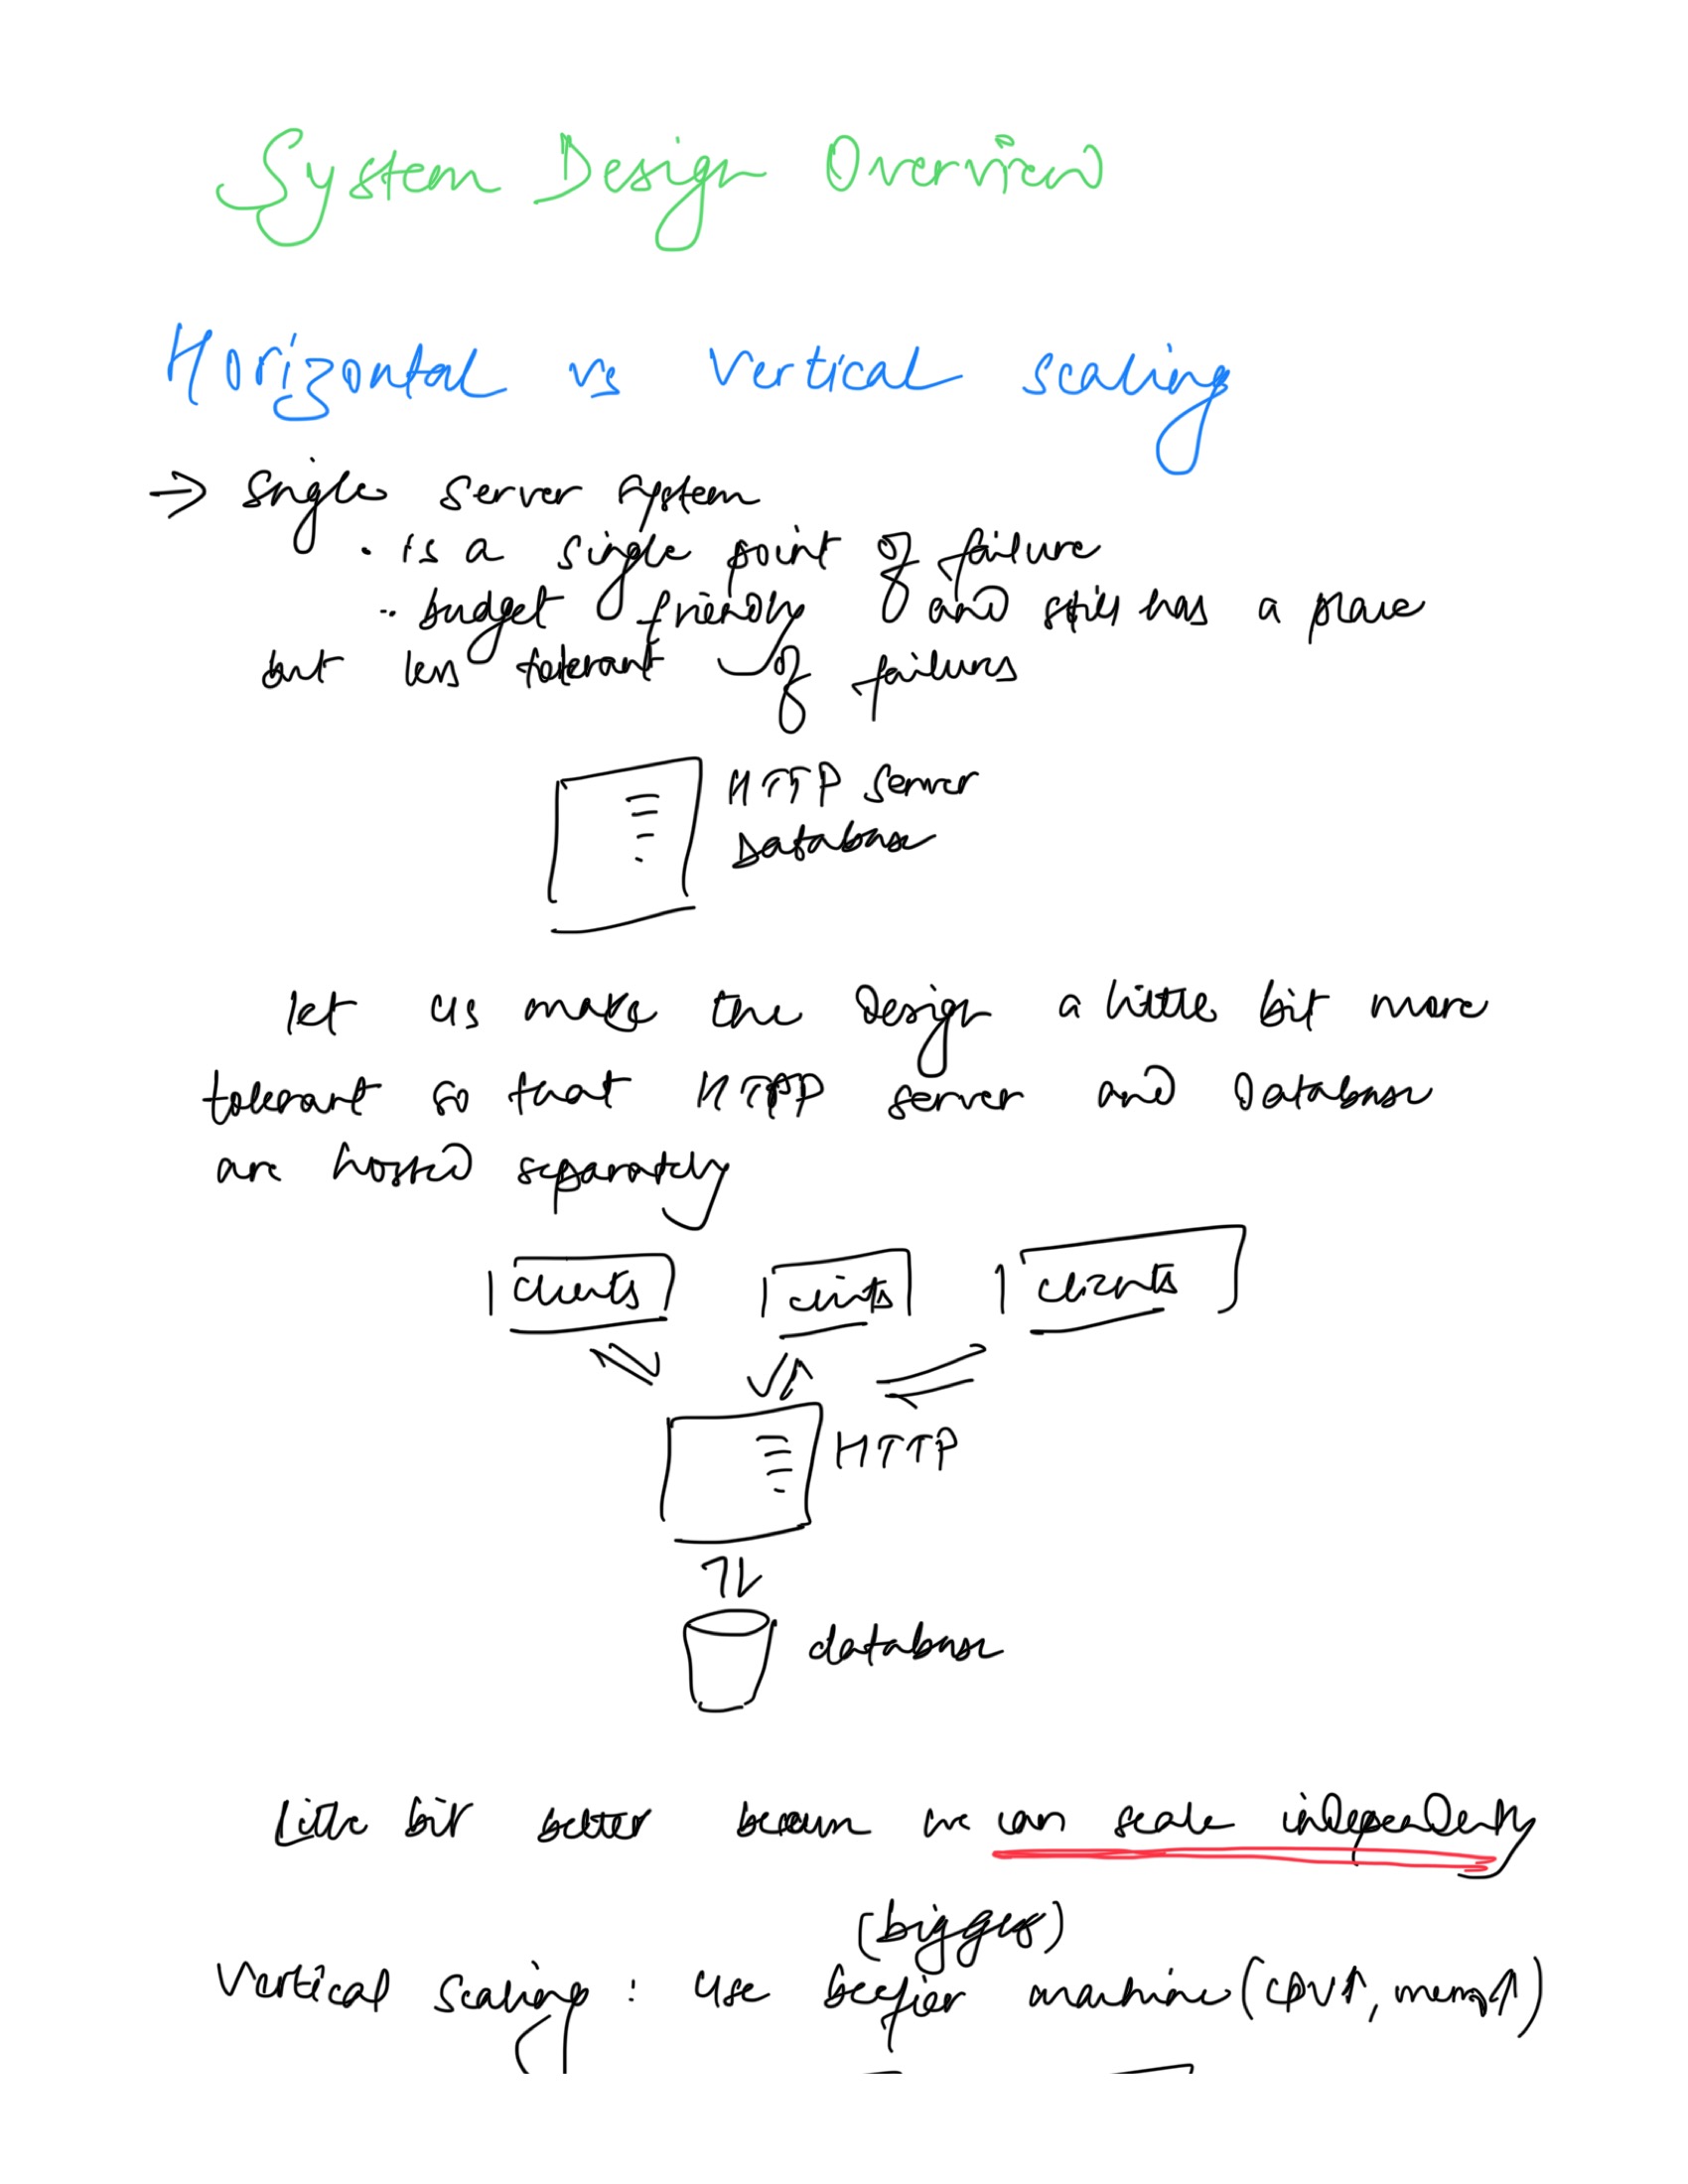 System Design Overview
Horizontal vs Vertical scaling
→ Single Server System
· is a single point of failure
·· budget friendly and still has a place
but less tolerant of failures
HTTP Server
Database
let us make the Design a little bit more
tolerant so that HTTP server and Database
are hosted separately
clients clients clients
HTTP
database
Little bit better because we can scale independently
(bigger)
Vertical Scaling : use beefier machine (CPU↑, mem↑)